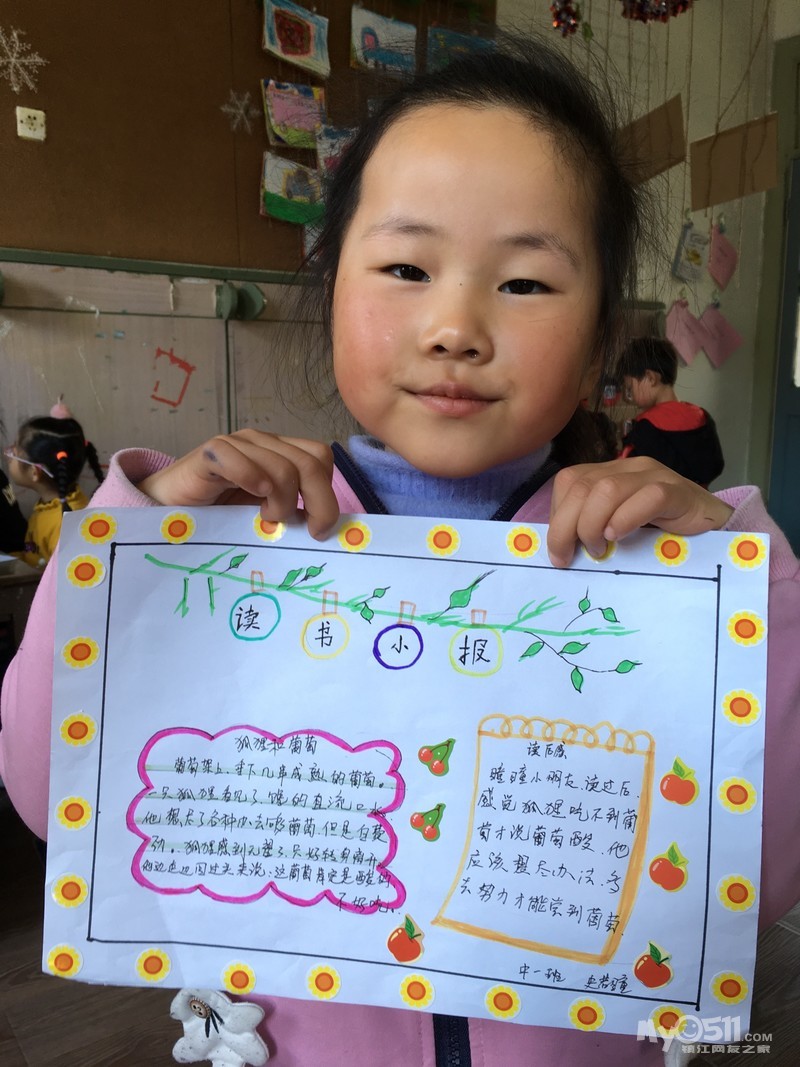 读书小报
狐狸和葡萄
葡萄架上,垂下几串成熟的葡萄。
一只狐狸看见了,馋的直流口水
他想尽了各种办法去够葡萄,但是白费
劲。狐狸感到无望了,只好转身离开
他边走边回过头来说:这葡萄肯定是酸的
不好吃。
读后感
瞳瞳小朋友,读过后,
感觉狐狸吃不到葡
萄才说葡萄酸,他
应该想尽办法,多
去努力才能尝到葡萄.
中一班 史若瞳
My0511.COM
镇江网友之家